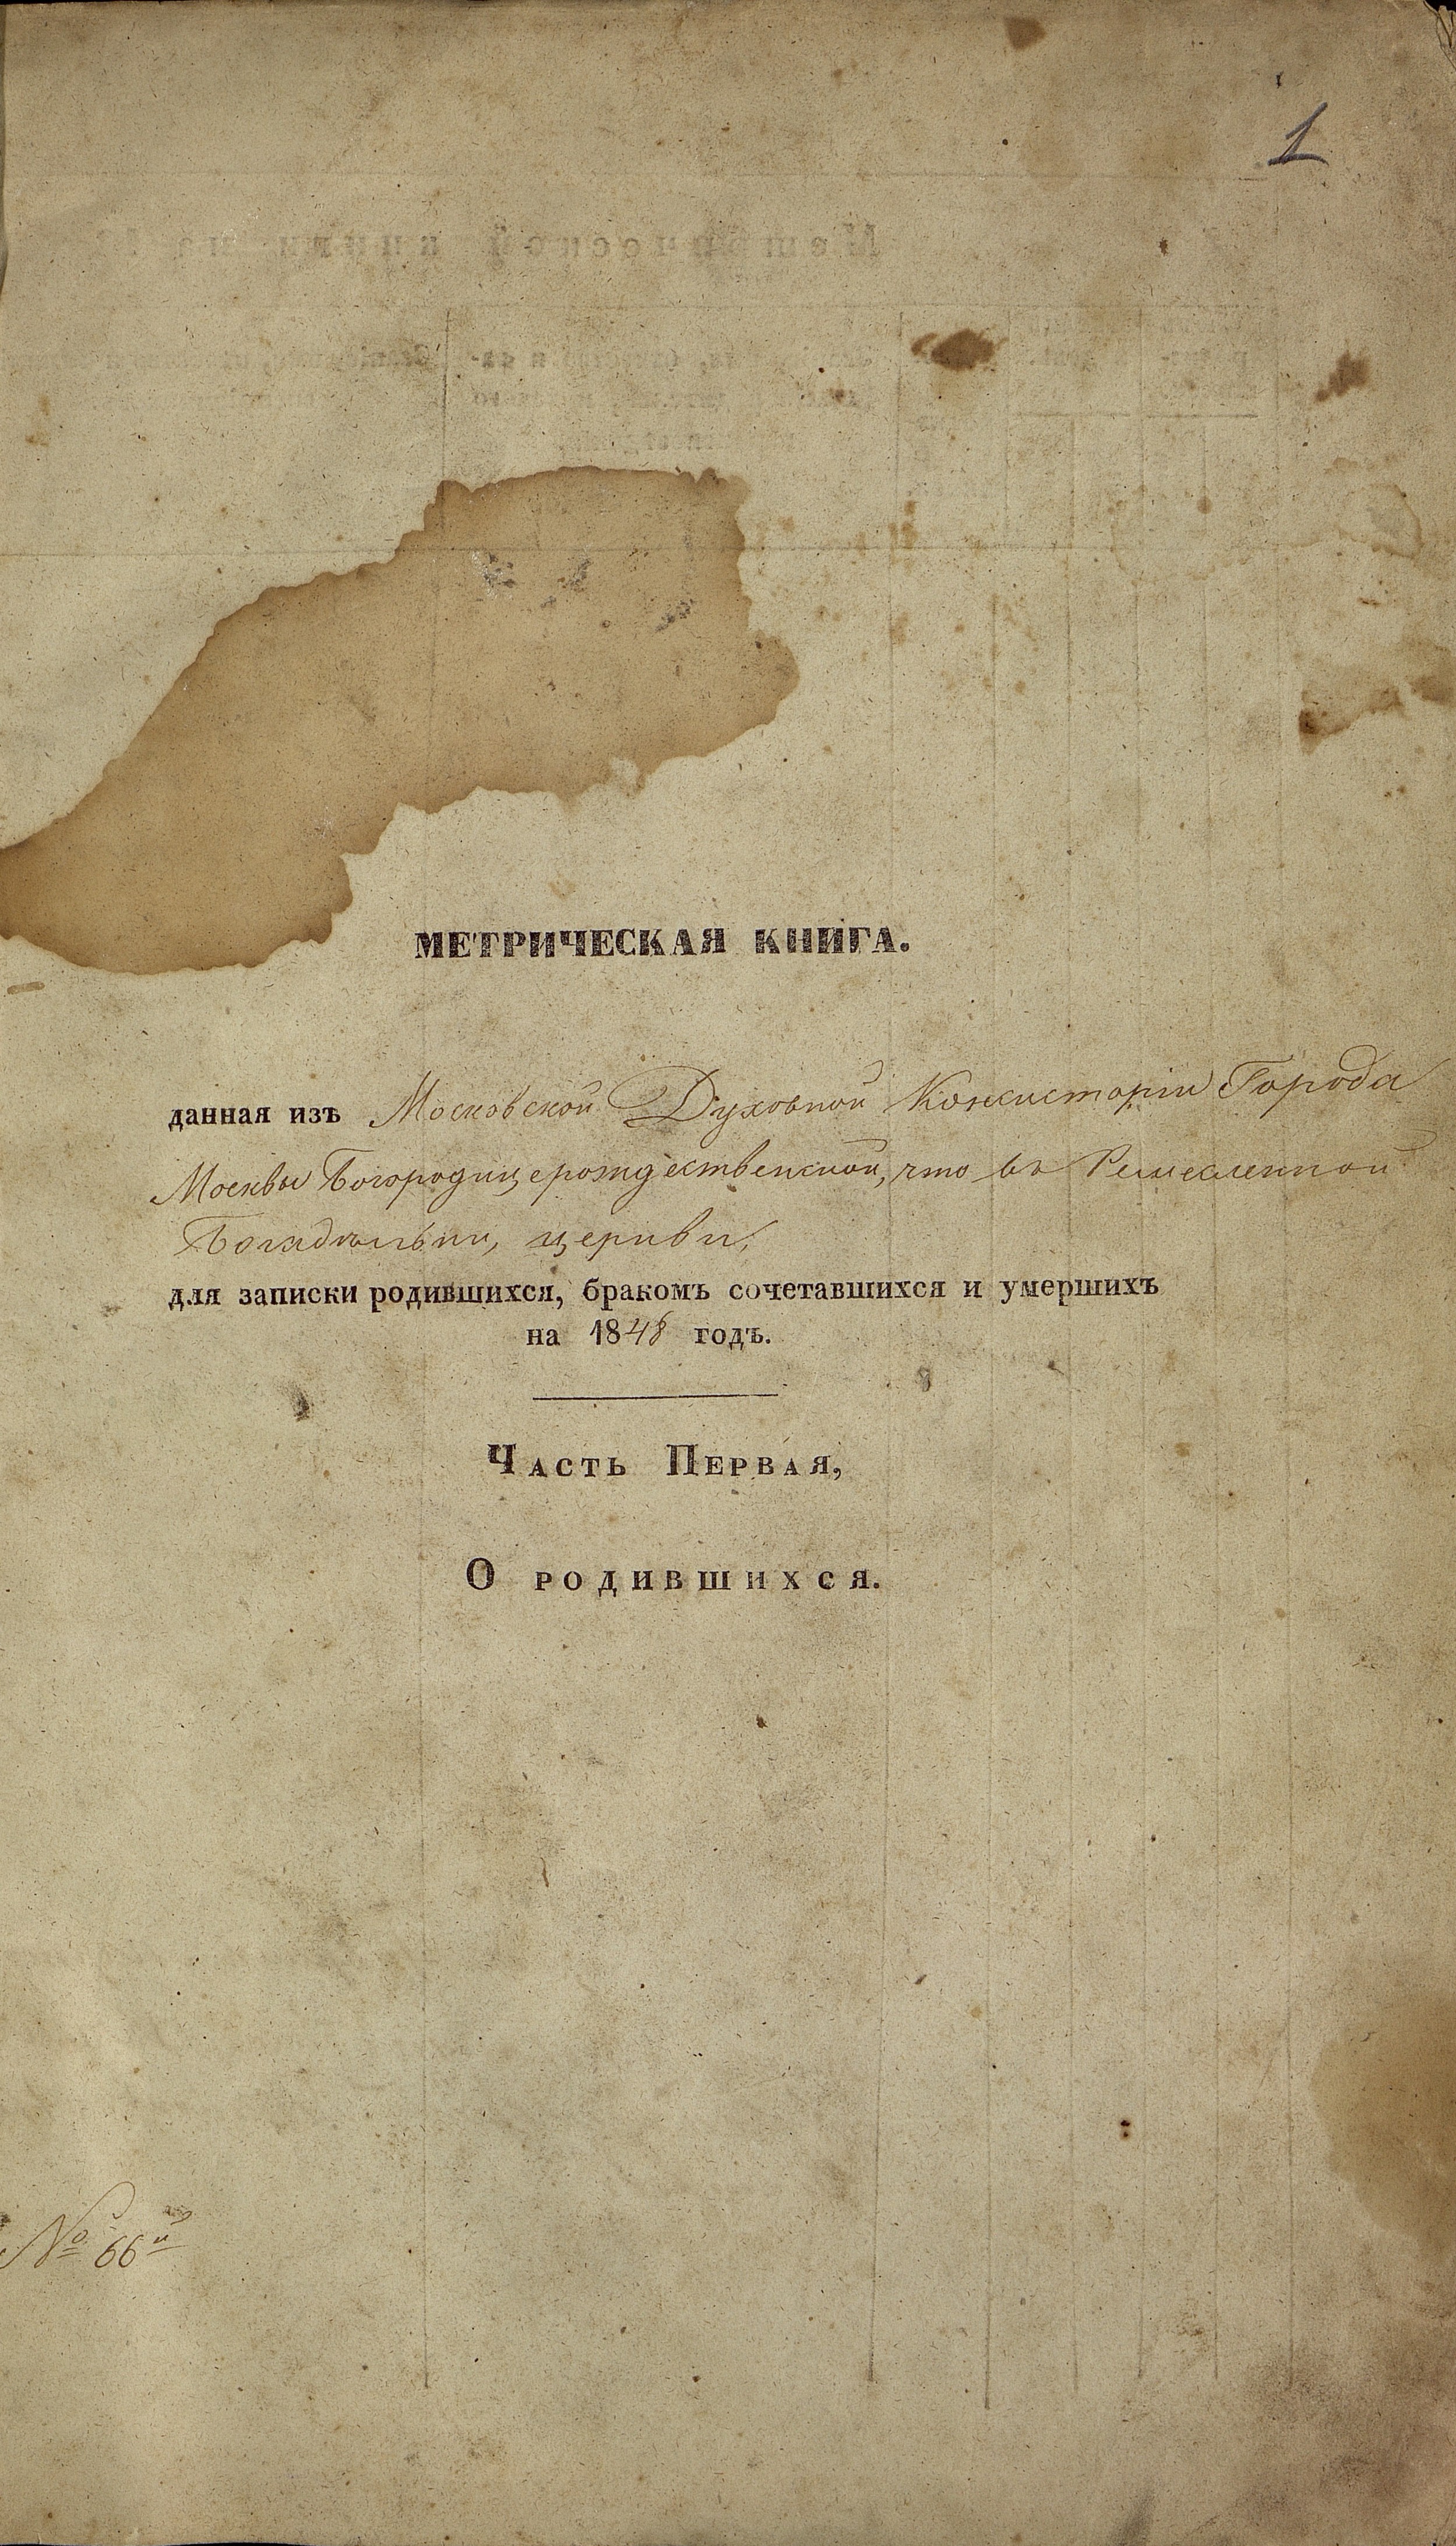 1
МЕТРИЧЕСКАЯ КНИГА.
данная изъ Московской Духовной Консисторіи Города
Москвы Богородицерождественской, что въ Ремесленной
Богадѣльни, церкви,
для записки родившихся, бракомъ сочетавшихся и умершихъ
на 1848 годъ.
Часть Первая,
О родившихся.
№ 66й